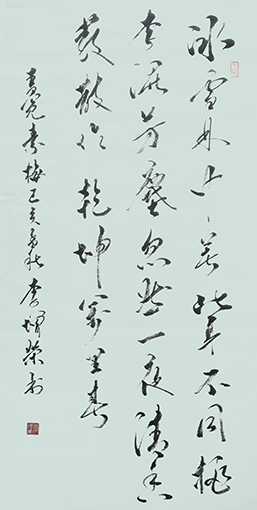 冰雪林中著此身不同桃
李混芳塵忽然一夜清香
發散作乾坤萬里春
冕素梅己亥秋李榮書